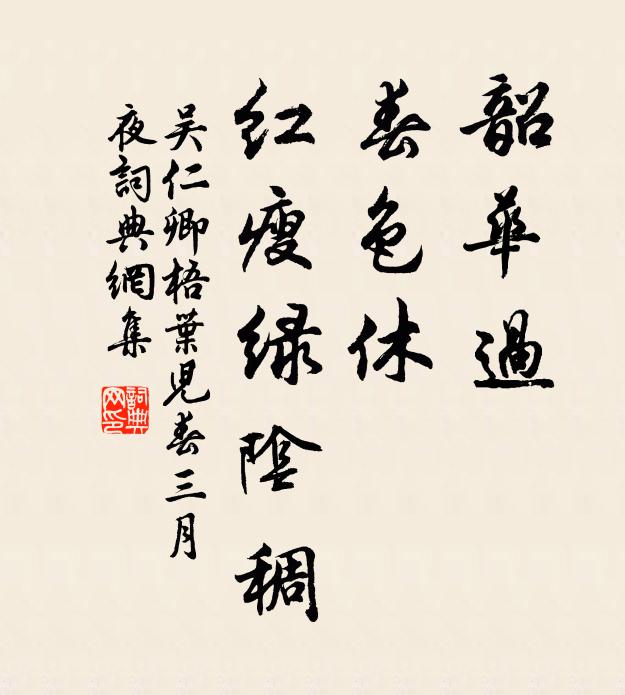 韶華過
春色休
紅瘦綠陰稠
吳仁卿梧葉兒春三月
夜詞典網集
詞典網印